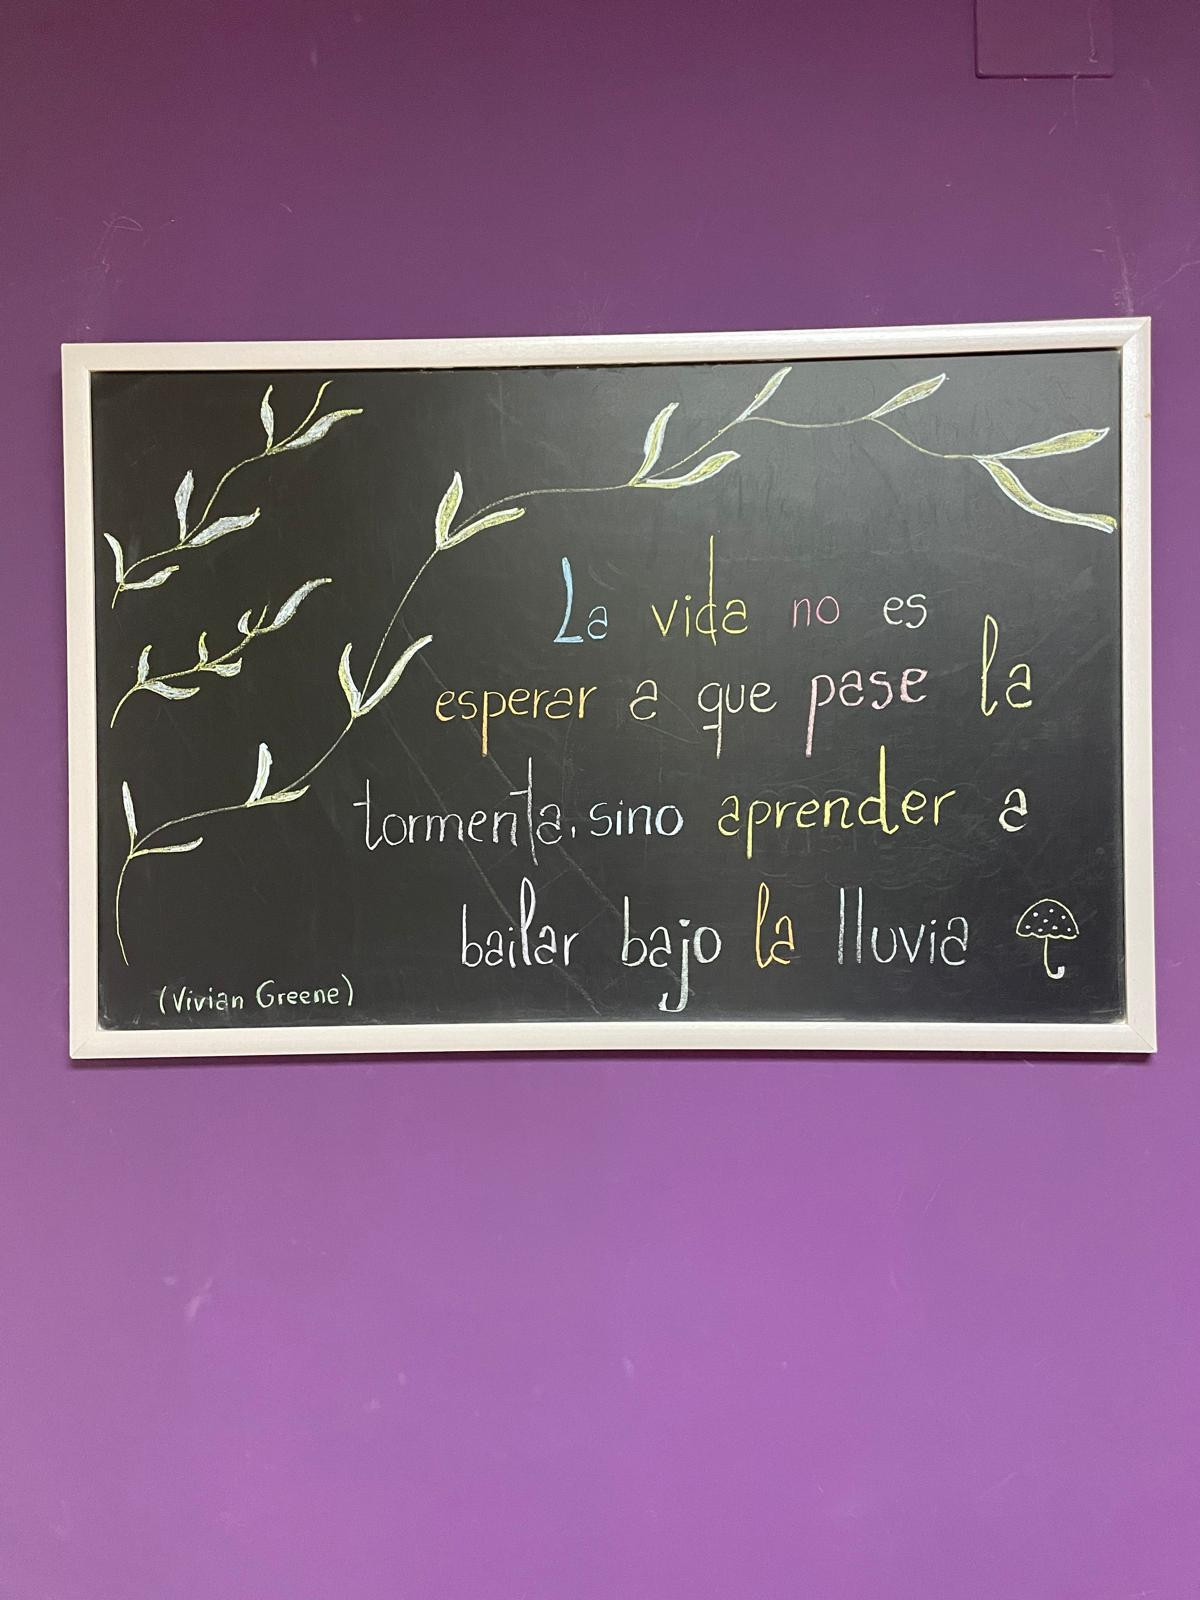 La vida no es
esperar a que pase la
tormenta, sino aprender a
bailar bajo la lluvia
(Vivian Greene)